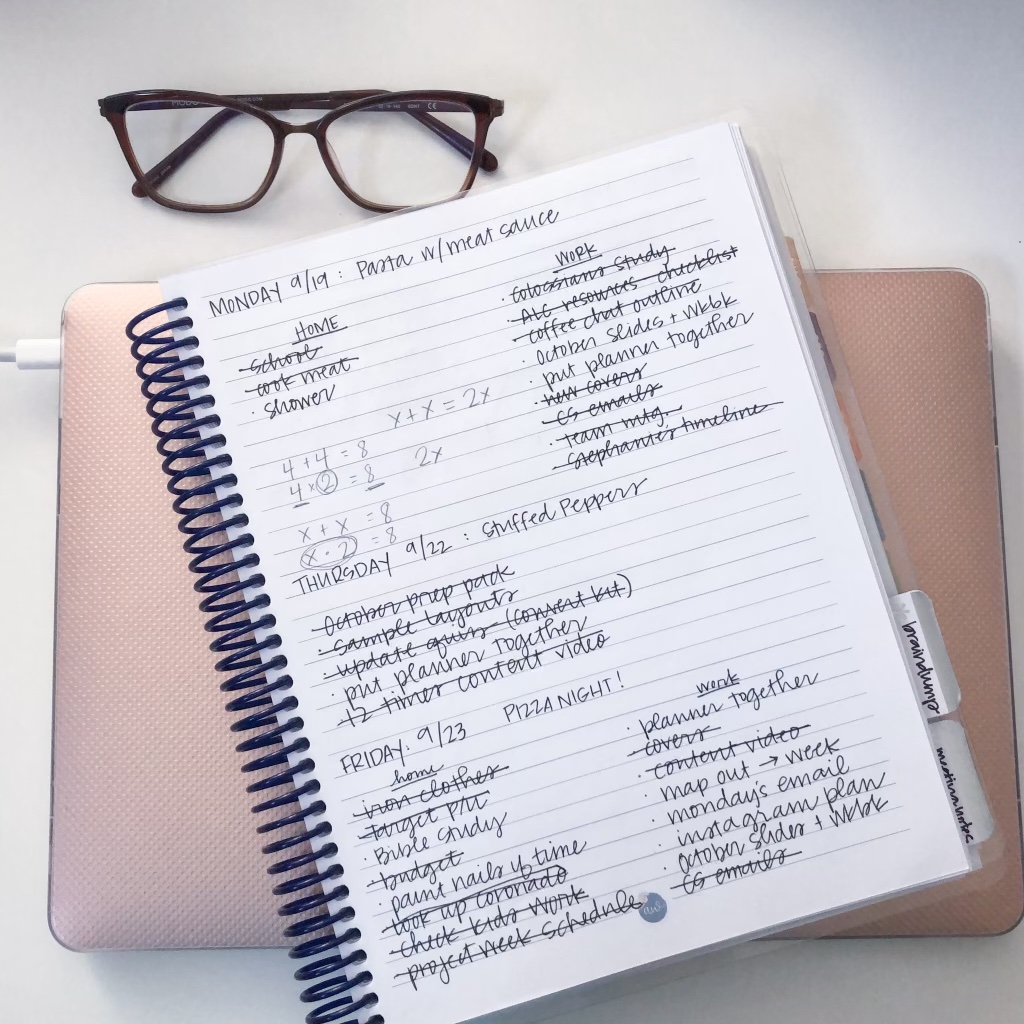 MONDAY 9/19 : Pasta w/meat sauce
HOME
· school
· cook meat
· shower
WORK
· Colossians study
· ALC resources checklist
· coffee chat outline
· October slides + wkbk
· put planner together
· new covers
· CG emails
· team mtg.
· Stephanie's timeline
x + x = 2x
4 + 4 = 8
2x
4 x 2 = 8
x + x = 8
x · 2 = 8
THURSDAY 9/22 : Stuffed Peppers
· October prep pack
· sample layouts
· update quiz (convert kit)
· put planner together
· 12 times content video
FRIDAY: 9/23 PIZZA NIGHT!
home
· iron clothes
· Target P/U
· Bible Study
· budget
· paint nails if time
· look up coronado
· check kids work
· project week schedule
work
· planner together
· covers
· content video
· map out → week
· monday's email
· instagram plan
· October slides + wkbk
· CG emails
aw
braindump
meeting notes